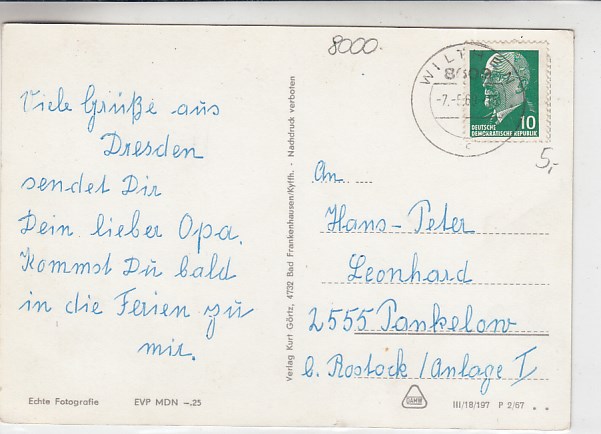 8000.
WILTHEN
8609
-7.-8.6
10
DEUTSCHE
DEMOKRATISCHE REPUBLIK
5,-
Viele Grüße aus
Dresden
sendet Dir
Dein lieber Opa.
Kommst Du bald
in die Ferien zu
mir.
Verlag Kurt Görtz, 4732 Bad Frankenhausen/Kyffh. · Nachdruck verboten
An
Hans-Peter
Leonhard
2555 Pankelow
b. Rostock/Anlage I
Echte Fotografie EVP MDN –.25
III/18/197 P 2/67